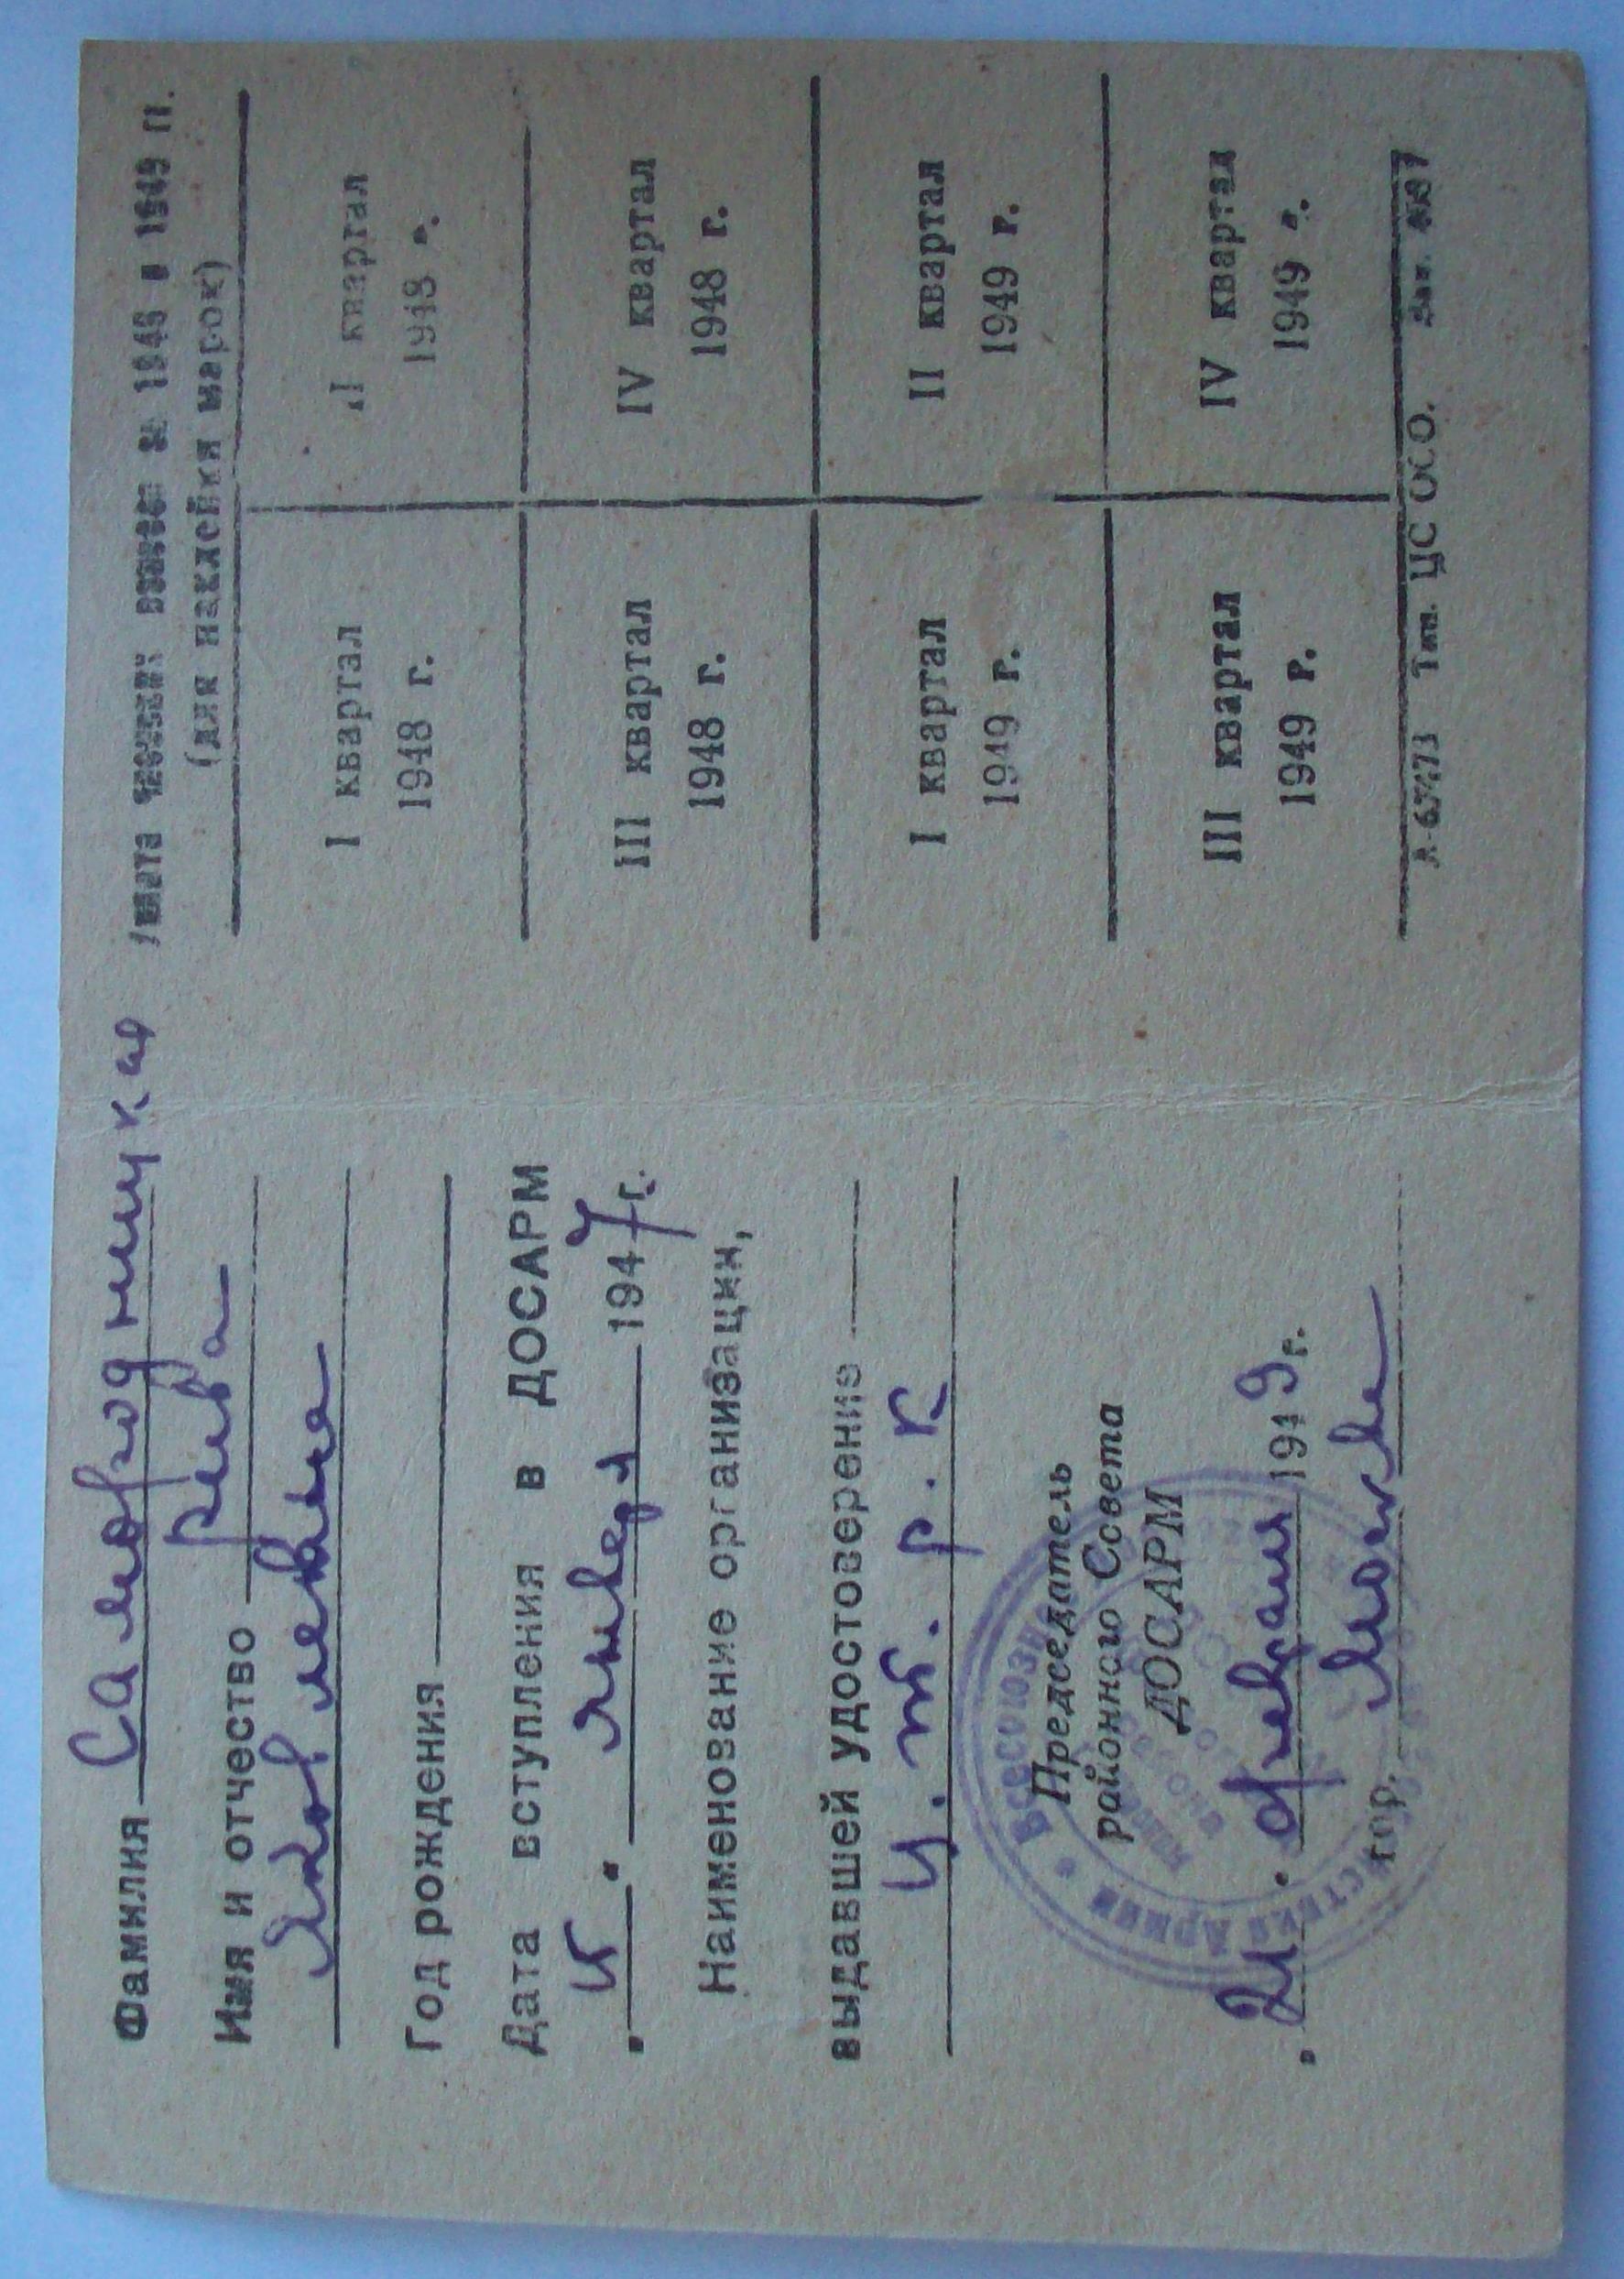 Фамилия Самородницкая
Рива
Имя и отчество
Яковлевна
Год рождения
Дата вступления в ДОСАРМ
января 1947 г.
Наименование организации,
выдавшей удостоверение
Ц. т. р. к
Председатель
районного Совета
ДОСАРМ
21 февраля 1949 г.
гор. Москва
Всесоюзн
Армии
взносов за 1948 и 1949 гг.
(для наклейки марок)
I квартал 1948 г.
II квартал 1948 г.
III квартал 1948 г.
IV квартал 1948 г.
I квартал 1949 г.
II квартал 1949 г.
III квартал 1949 г.
IV квартал 1949 г.
Тип. ЦС ОСО. Зак.